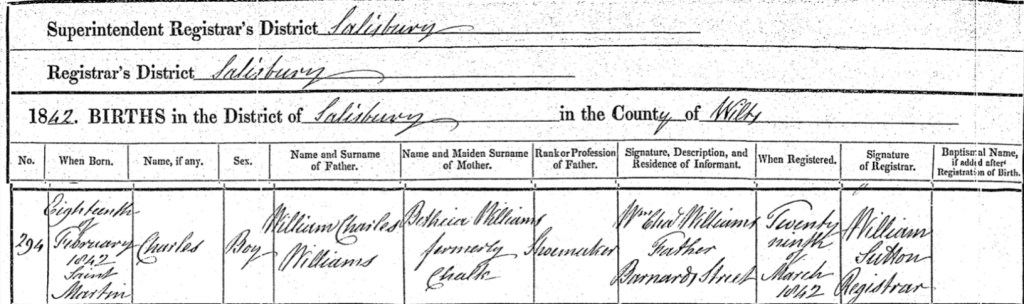 Superintendent Registrar's District Salisbury
Registrar's District Salisbury
1842. BIRTHS in the District of Salisbury in the County of Wilts
No. When Born. Name, if any. Sex. Name and Surname of Father. Name and Maiden Surname of Mother. Rank or Profession of Father. Signature, Description, and Residence of Informant. When Registered. Signature of Registrar. Baptismal Name, if added after Registration of Birth.
294
Eighteenth
of
February
1842
Saint
Martin
Charles
Boy
William Charles
Williams
Williams
formerly
Chalk
Shoemaker
Wm Chas Williams
Father
Barnards Street
Twenty
ninth
of
March
1842
William
Sutton
Registrar